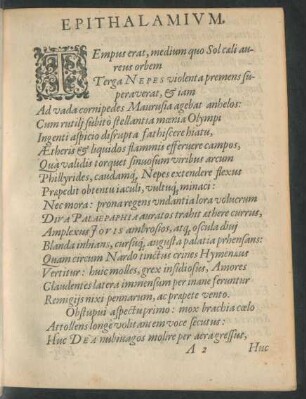 EPITHALAMIVM.
TEmpus erat, medium quo Sol cæli au-
reus orbem
Terga NEPES violenta premens su-
peraverat, & iam
Ad vada cornipedes Maurusia agebat anhelos:
Cum rutili subitò stellantia mœnia Olympi
Ingenti aspicio disrupta fathiscere hiatu,
Ætheris & liquidos flammis effervere campos,
Quà validis torquet sinuosum viribus arcum
Phillyrides, caudamq́, Nepes extendere flexus
Præpedit obtentu iaculi, vultuq́, minaci:
Nec mora: prona regens undantia lora volucrum
DIVA PALÆPAPHIA auratos trahit æthere currus,
Amplexus JOVIS ambrosios, atq, oscula diuj
Blanda inhians, cursuq́, angusta palatia prhensans:
Quam circum Nardo tinctus crines Hymenæus
Vertitur: huic molles, grex insidiosus, Amores
Claudentes latera immensum per inane feruntur
Remigijs nixi pennarum, ac præpete vento.
Obstupui aspectu primo: mox brachia cælo
Attollens longè volitantem voce secutus:
Huc DEA nubivagos molire per aëra gressus,
A 2 Huc